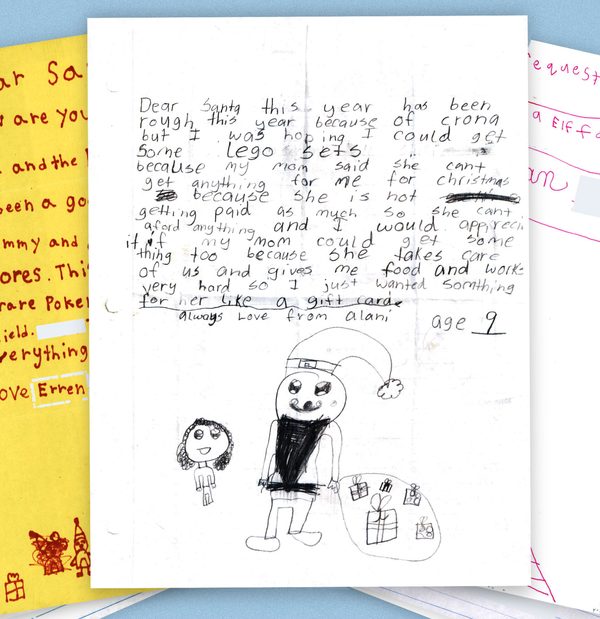 ar Sa
are you
and the
been a goo
mmy and
ores. This
rare Poke
ield.
verything
ove Erren
Dear Santa this year has been
rough this year because of crona
but I was hoping I could get
Some lego sets
because my mom said she cant
get anything for me for christmas
because she is not
getting paid as much so she cant
aford anything and I would appreci
it if my mom could get some
thing too because she takes care
of us and gives me food and works
very hard so I just wanted somthing
for her like a gift card.
always Love from alani age 9
equest
a Elf fo
an